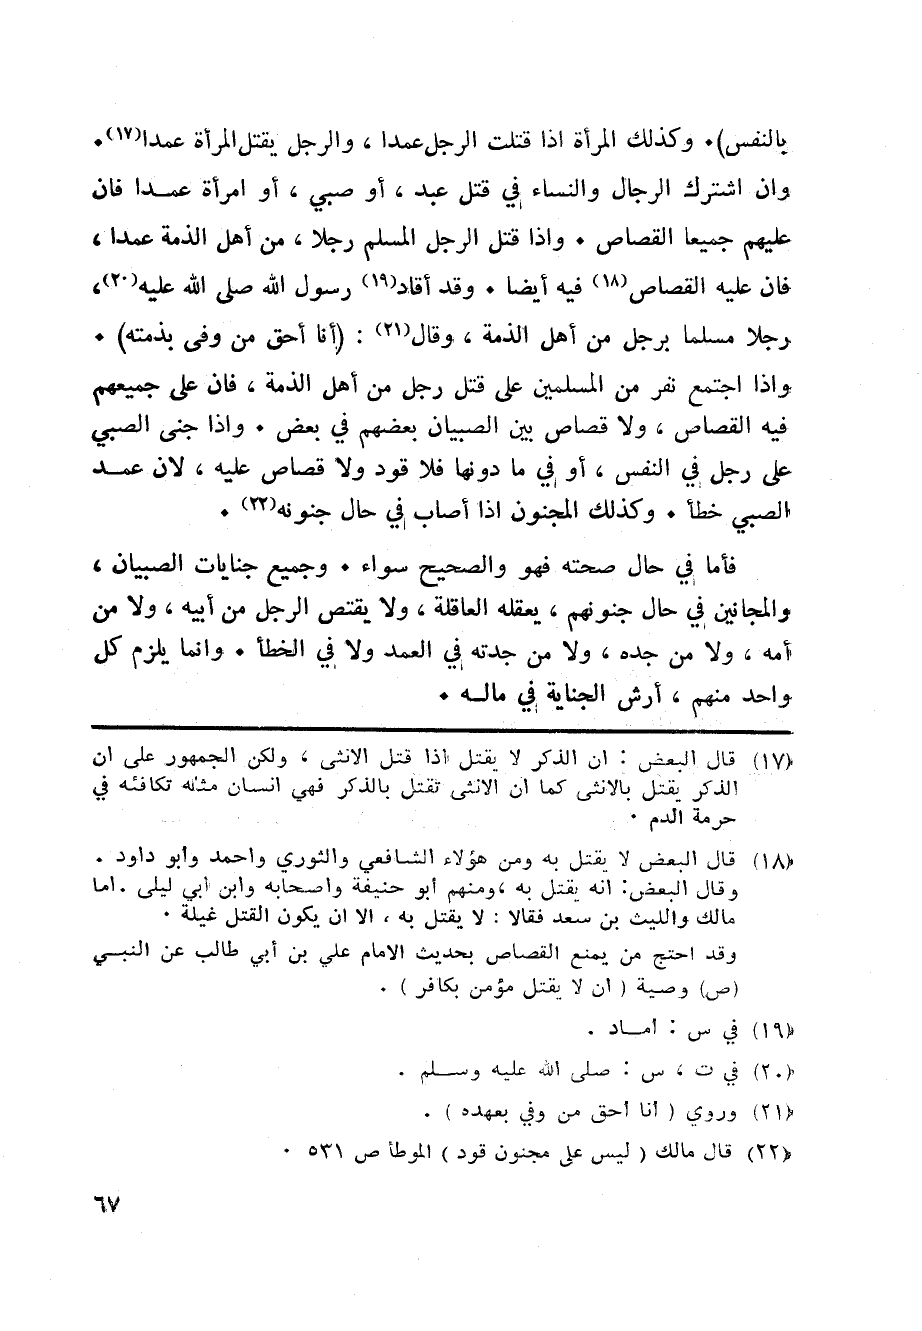 بالنفس)٠ وكذلك المرأة اذا قتلت الرجل عمدا ، والرجل يقتل المرأة عمدا(١٧)٠
وان اشترك الرجال والنساء في قتل عبد ، أو صبي ، أو امرأة عمـدا فان
عليهم جميعا القصاص ٠ واذا قتل الرجل المسلم رجلا ، من أهل الذمة عمدا ،
فان عليه القصاص(١٨) فيه أيضا ٠ وقد أقاد(١٩) رسول الله صلى الله عليه(٢٠)،
رجلا مسلما برجل من أهل الذمة ، وقال(٢١) : (أنا أحق من وفى بذمته) ٠
واذا اجتمع نفر من المسلمين على قتل رجل من أهل الذمة ، فان على جميعهم
فيه القصاص ، ولا قصاص بين الصبيان بعضهم في بعض ٠ واذا جنى الصبي
على رجل في النفس ، أو في ما دونها فلا قود ولا قصاص عليه ، لان عمـد
الصبي خطأ ٠ وكذلك المجنون اذا أصاب في حال جنونه(٢٢) ٠
فأما في حال صحته فهو والصحيح سواء ٠ وجميع جنايات الصبيان ،
والمجانين في حال جنونهم ، يعقله العاقلة ، ولا يقتص الرجل من أبيه ، ولا من
أمه ، ولا من جده ، ولا من جدته في العمد ولا في الخطأ ٠ وانما يلزم كل
واحد منهم ، أرش الجناية في مالـه ٠
(١٧) قال البعض : ان الذكر لا يقتل اذا قتل الانثى ، ولكن الجمهور على ان
الذكر يقتل بالانثى كما ان الانثى تقتل بالذكر فهي انسان مثله تكافئه في
حرمة الدم ٠
(١٨) قال البعض لا يقتل به ومن هؤلاء الشافعي والثوري واحمد وأبو داود .
وقال البعض: انه يقتل به ،ومنهم أبو حنيفة واصحابه وابن أبي ليلى .اما
مالك والليث بن سعد فقالا : لا يقتل به ، الا ان يكون القتل غيلة ٠
وقد احتج من يمنع القصاص بحديث الامام علي بن أبي طالب عن النبـي
(ص) وصية ( ان لا يقتل مؤمن بكافر ) .
(١٩) في س : أمـاد .
(٢٠) في ت ، س : صلى الله عليه وسـلم .
(٢١) وروي ( أنا أحق من وفي بعهده ) .
(٢٢) قال مالك ( ليس على مجنون قود ) الموطأ ص ٥٣١ ٠
٦٧